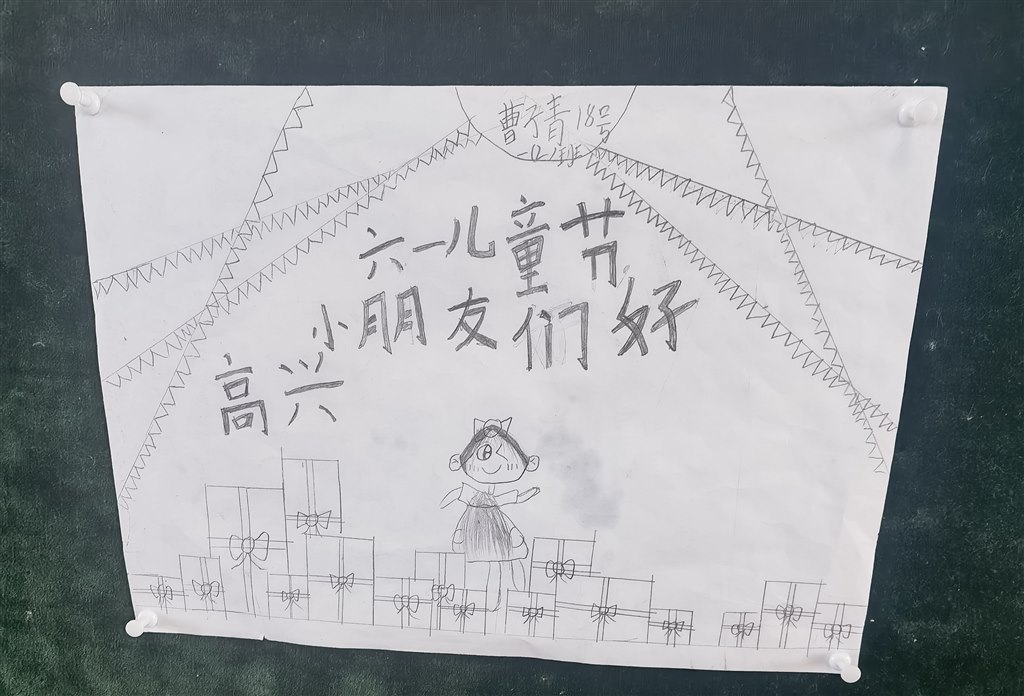 曹子青 18号
一(2)班
六一儿童节
小朋友们好
高兴